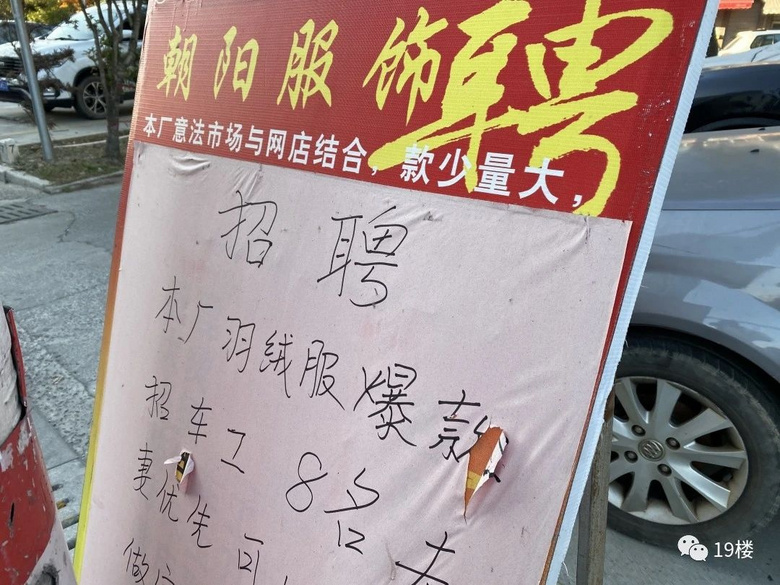 朝阳服饰聘
本厂意法市场与网店结合，款少量大，
招聘
本厂羽绒服爆款
招车工8名 夫
妻优先 可
做
19楼